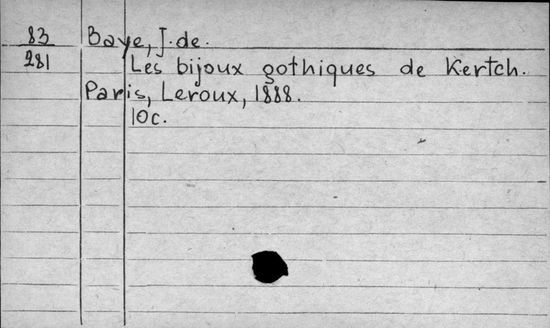 83
281
Baye, J. de.
Les bijoux gothiques de Kertch.
Paris, Leroux, 1888.
10c.